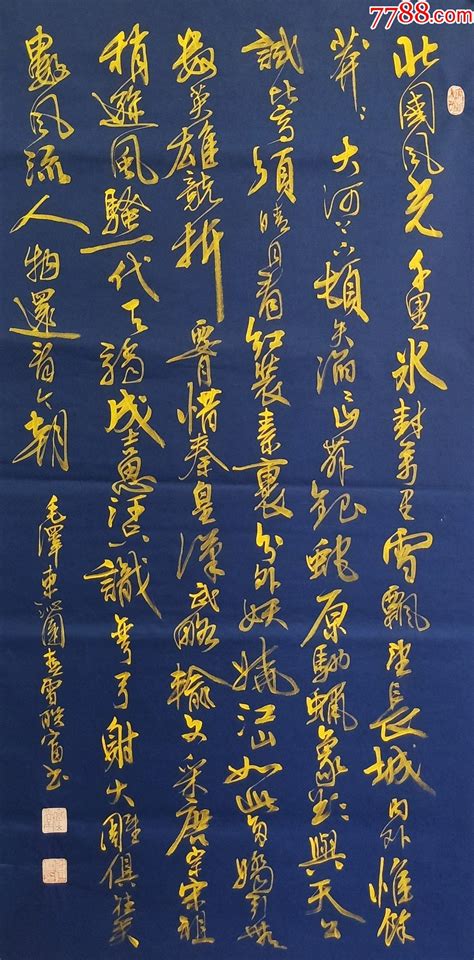 7788.com
北國风光千里冰封萬里雪飄望長城内外惟餘
莽〻大河上下頓失滔〻山舞銀蛇原馳蠟象欲與天公
試比高須晴日看紅裝素裹分外妖嬈江山如此多嬌引無
數英雄競折腰惜秦皇漢武略輸文采唐宗宋祖
稍遜風騷一代天驕成吉思汗只識彎弓射大雕俱往矣
數風流人物還看今朝
毛澤東沁園春雪